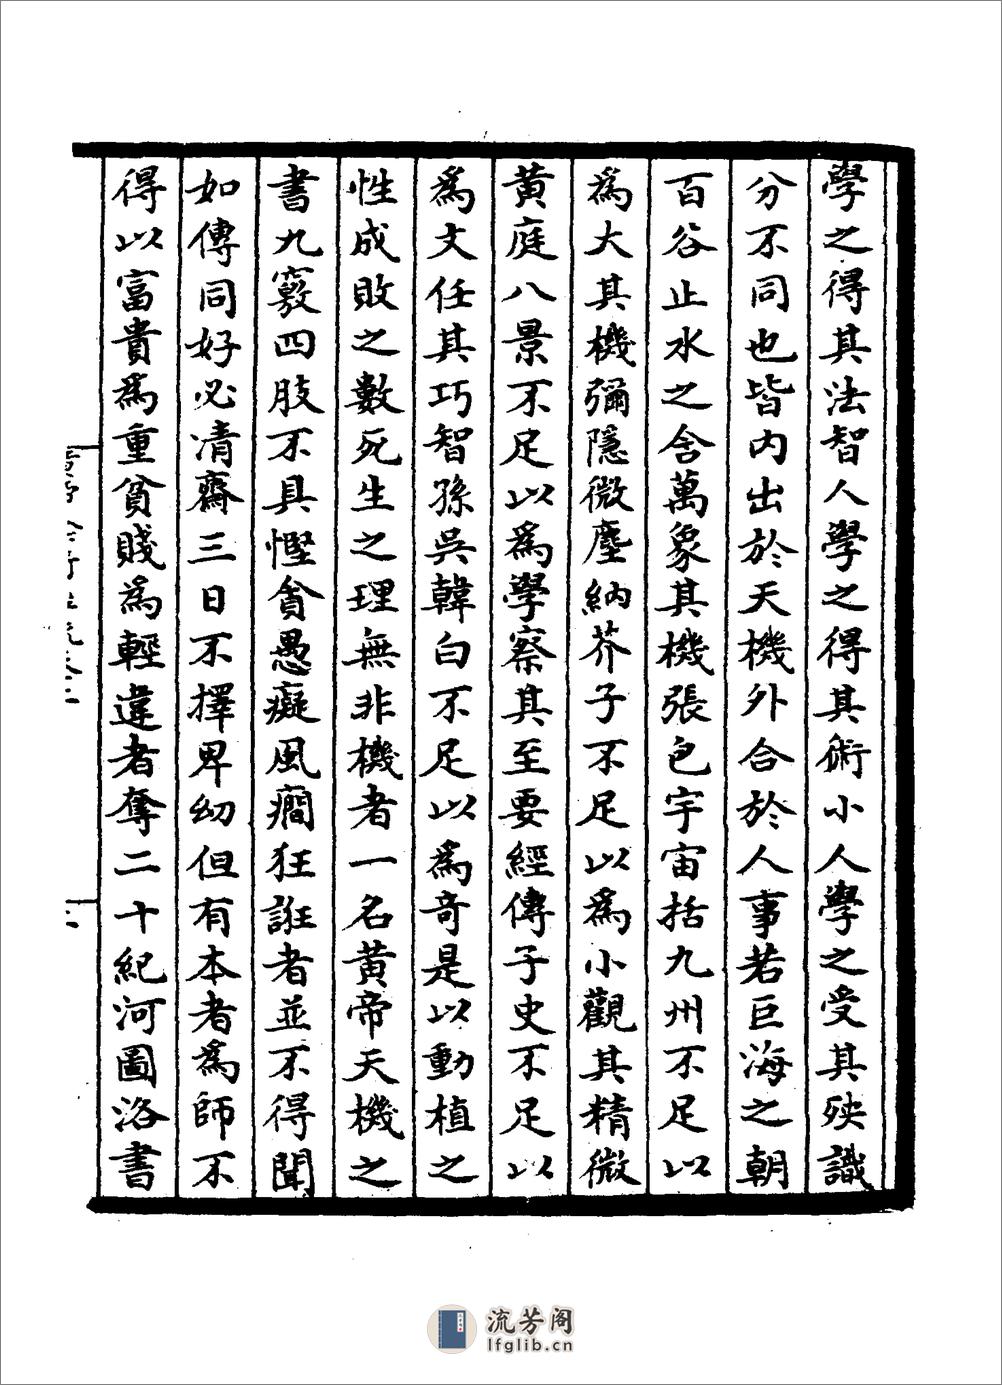 學之得其法智人學之得其術小人學之受其殃識
分不同也皆内出於天機外合於人事若巨海之朝
百谷止水之含萬象其機張包宇宙括九州不足以
為大其機彌隱微塵納芥子不足以為小觀其精微
黄庭八景不足以為學察其至要經傳子史不足以
為文任其巧智孫吳韓白不足以為奇是以動植之
性成敗之數死生之理無非機者一名黄帝天機之
書九竅四肢不具慳貪愚癡風癇狂誑者並不得聞
如傳同好必清齋三日不擇卑幼但有本者為師不
得以富貴為重貧賤為輕違者奪二十紀河圖洛書
流芳阁
lfglib.cn